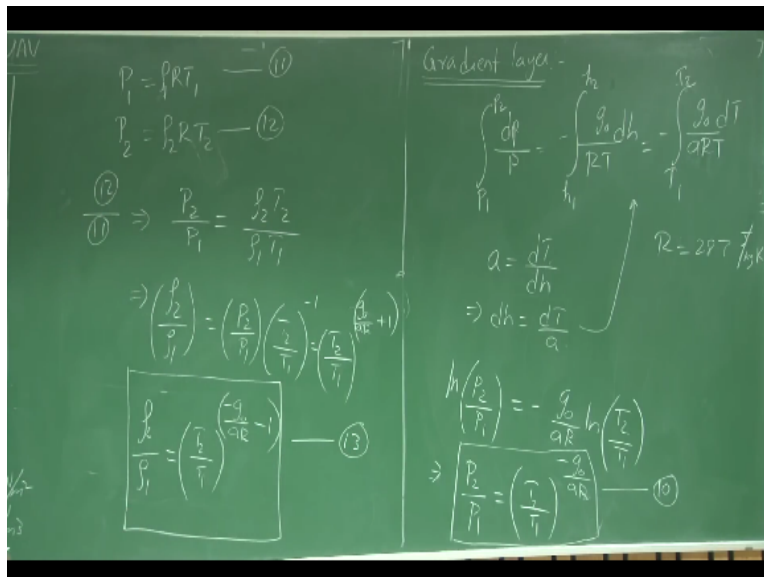 UAV
P₁ = ρ₁RT₁ — ⑪
P₂ = ρ₂RT₂ — ⑫
⑫/⑪ ⇒ P₂/P₁ = ρ₂T₂/ρ₁T₁
⇒ (ρ₂/ρ₁) = (P₂/P₁)(T₂/T₁)⁻¹ = (T₂/T₁)^(g₀/aR + 1)
ρ₂/ρ₁ = (T₂/T₁)^(-g₀/aR - 1) — ⑬
Gradient layer:-
∫_{P₁}^{P₂} dp/P = -∫_{h₁}^{h₂} g₀/RT dh = -∫_{T₁}^{T₂} g₀dT/aRT
R = 287 J/kgK
a = dT/dh
⇒ dh = dT/a
ln(P₂/P₁) = - g₀/aR ln(T₂/T₁)
⇒ P₂/P₁ = (T₂/T₁)^(-g₀/aR) — ⑩